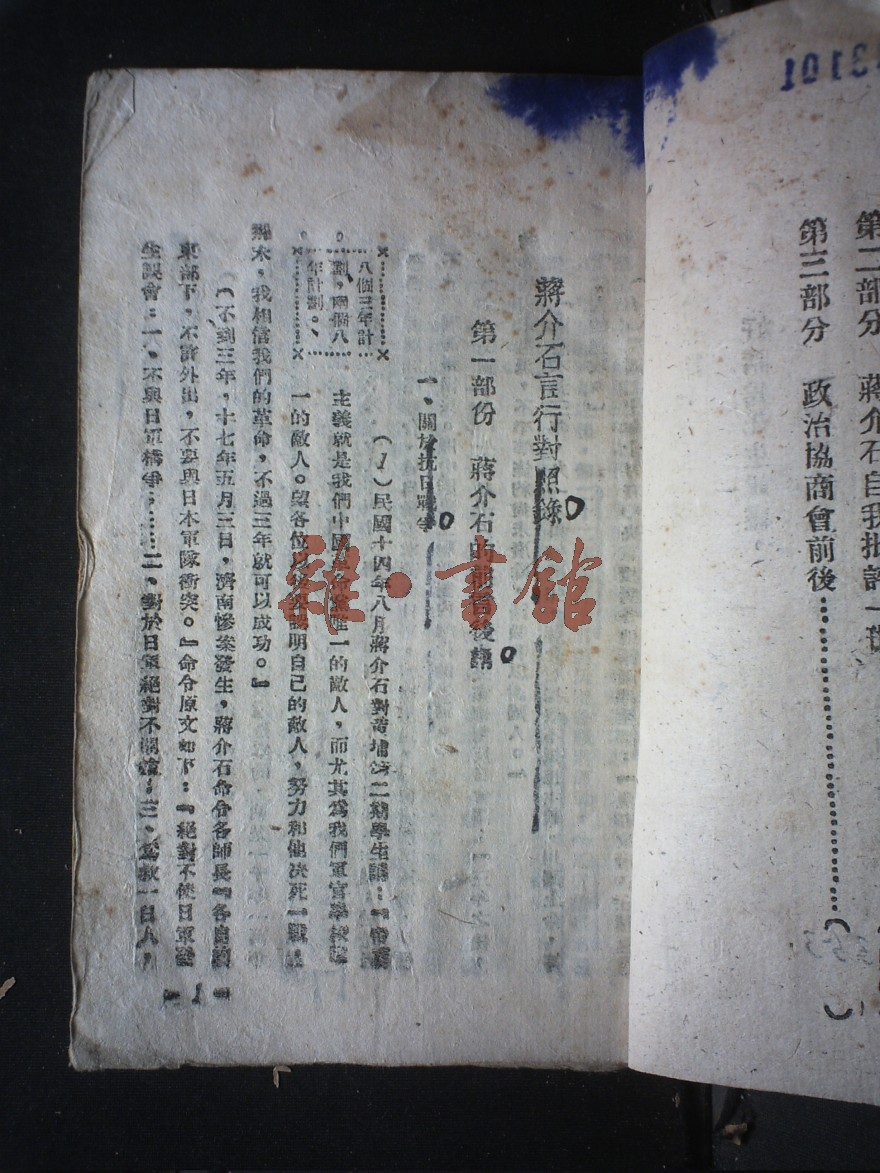 3101
第二部分 蔣介石自我批評一
第三部分 政治協商會前後……………………(
蔣介石言行對照錄
第一部份 蔣介石 後講
一、關於抗日戰爭
(1)民國十四年八月蔣介石對黃埔 二期學生講:『帝國
主義就是我們中國 唯一的敵人,而尤其為我們軍官學校
一的敵人。望各位以後 明自己的敵人,努力和他決死一戰。
八個三年計
劃,兩個八
年計劃。
我相信我們的革命,不過三年就可以成功。』
(不到三年,十七年五月三日,濟南慘案發生,蔣介石命令各師長『各自約
束部下,不許外出,不要與日本軍隊衝突。』命令原文如下:『絕對不使日軍發
生誤會;一、不與日軍構爭……二、對於日軍絕對不開槍;三、為救一日人,
1
雜·書館